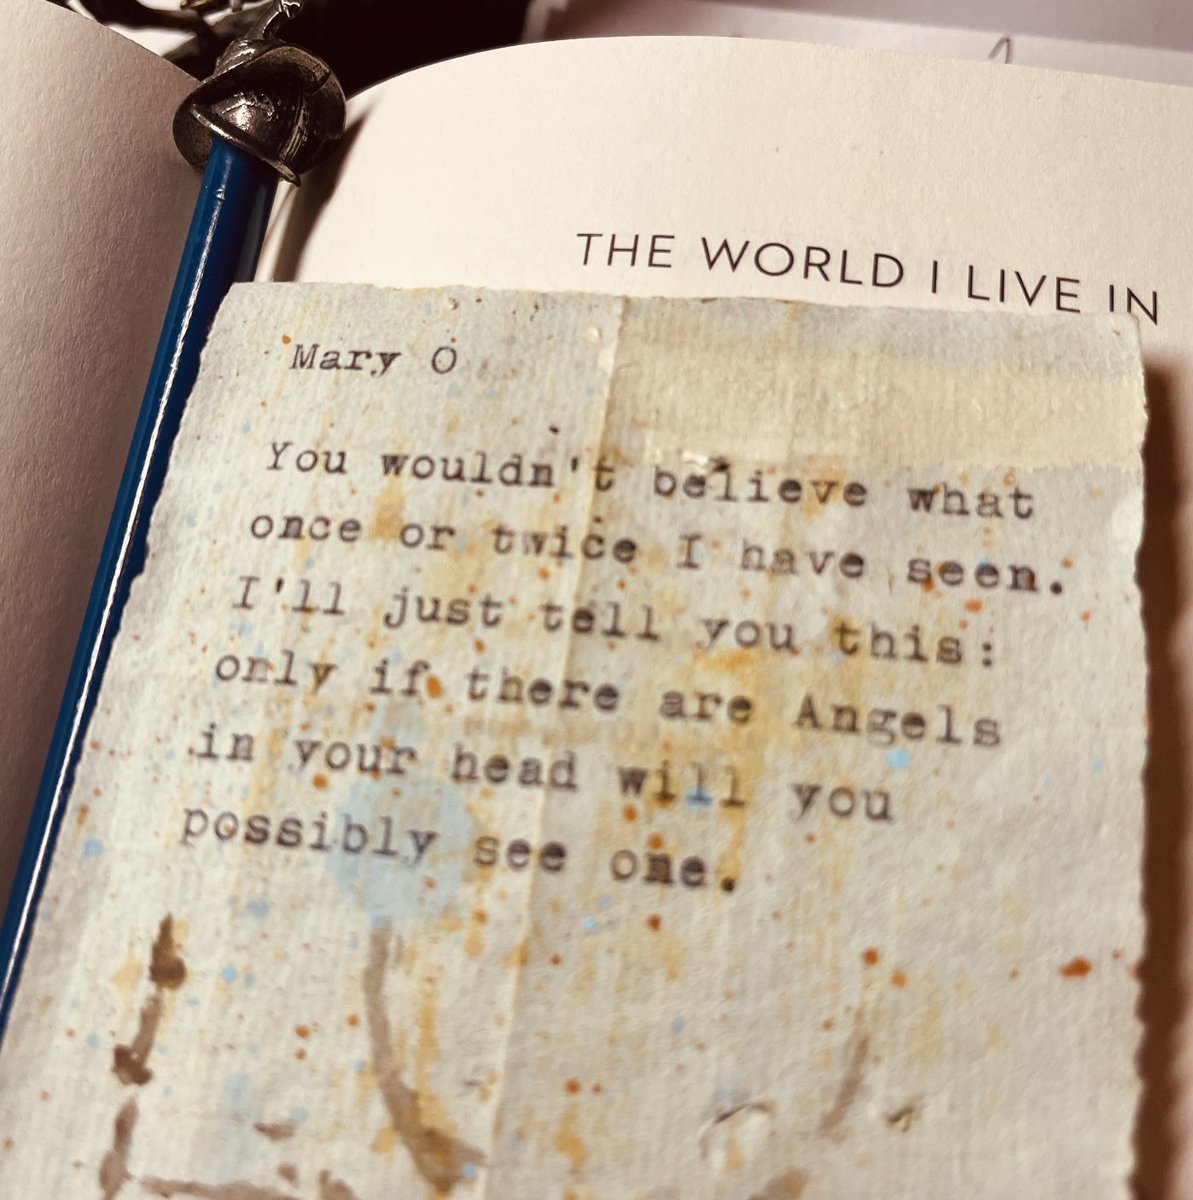 THE WORLD I LIVE IN
Mary O
You wouldn't believe what
once or twice I have seen.
I'll just tell you this:
only if there are Angels
in your head will you
possibly see one.